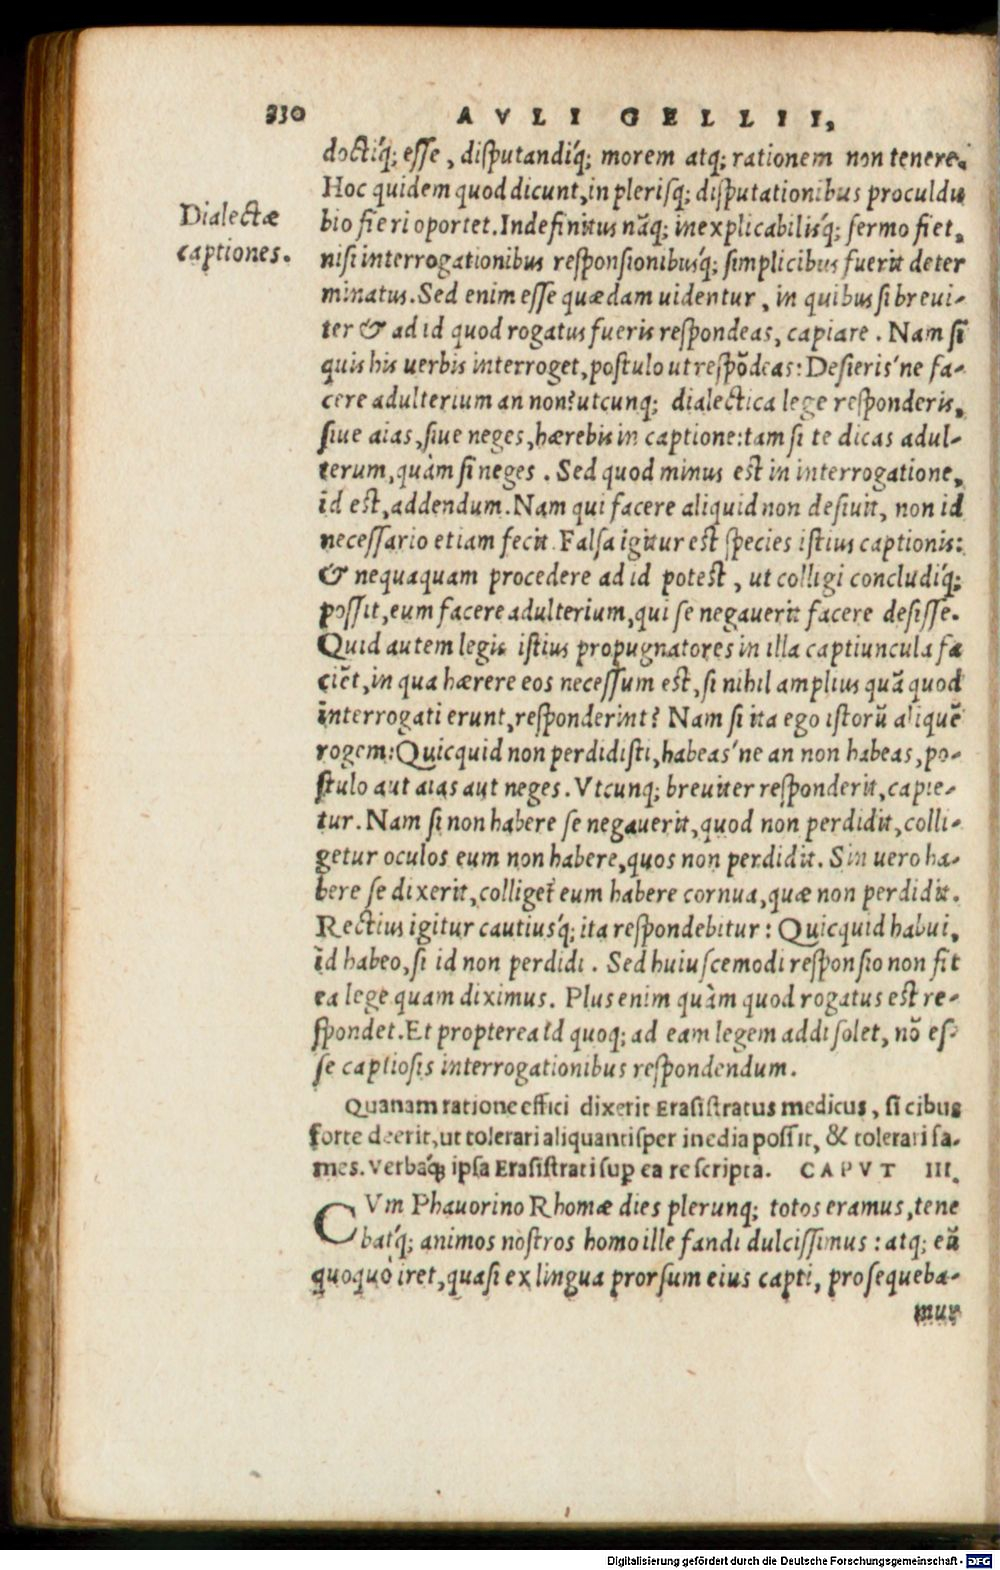 330
AVLI GELLII,
doctíq; esse, disputandíq; morem atq; rationem non tenere.
Hoc quidem quod dicunt, in plerisq; disputationibus proculdu
Dialectæ
captiones.
bio fieri oportet. Indefinitus nãq; inexplicabilisq́; sermo fiet,
nisi interrogationibus responsionibusq́; simplicibus fuerit deter
minatus. Sed enim esse quædam uidentur, in quibus si breui-
ter & ad id quod rogatus fueris respondeas, capiare. Nam si
quis his uerbis interroget, postulo ut respõdeas: Desieris'ne fa-
cere adulterium an non? utcunq; dialectica lege responderis,
siue aias, siue neges, hærebis in captione: tam si te dicas adul-
terum, quàm si neges. Sed quod minus est in interrogatione,
id est, addendum. Nam qui facere aliquid non desiuit, non id
necessario etiam fecit. Falsa igitur est species istius captionis:
& nequaquam procedere ad id potest, ut colligi concludíq;
possit, eum facere adulterium, qui se negauerit facere desisse.
Quid autem legis istius propugnatores in illa captiuncula fa
ciẽt, in qua hærere eos necessum est, si nihil amplius quã quod
interrogati erunt, responderint? Nam si ita ego istorũ aliquẽ
rogem: Quicquid non perdidisti, habeas'ne an non habeas, po-
stulo aut aias aut neges. Vtcunq; breuiter responderit, capie-
tur. Nam si non habere se negauerit, quod non perdidit, colli-
getur oculos eum non habere, quos non perdidit. Sin uero ha-
bere se dixerit, colliget eum habere cornua, quæ non perdidit.
Rectius igitur cautiusq́; ita respondebitur: Quicquid habui,
id habeo, si id non perdidi. Sed huiuscemodi responsio non fit
ea lege quam diximus. Plus enim quàm quod rogatus est re-
spondet. Et propterea id quoq; ad eam legem addi solet, nõ es-
se captiosis interrogationibus respondendum.
Quanam ratione effici dixerit Erasistratus medicus, si cibus
forte deerit, ut tolerari aliquantisper inedia possit, & tolerari fa-
mes. Verbaq́; ipsa Erasistrati sup ea re scripta. CAPVT III.
CVm Phauorino Rhomæ dies plerunq; totos eramus, tene
batq́; animos nostros homo ille fandi dulcissimus: atq; eũ
quoquò iret, quasi ex lingua prorsum eius capti, prosequeba-
mur
Digitalisierung gefördert durch die Deutsche Forschungsgemeinschaft - DFG